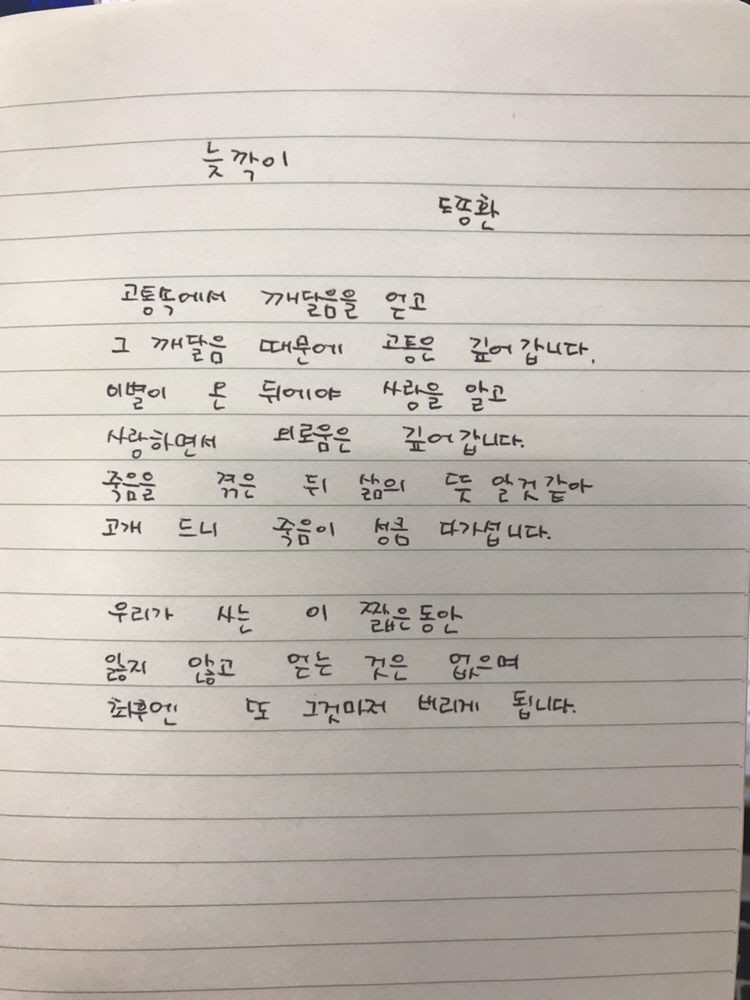 늦깎이
도종환
고통속에서 깨달음을 얻고
그 깨달음 때문에 고통은 깊어 갑니다.
이별이 온 뒤에야 사랑을 알고
사랑하면서 외로움은 깊어 갑니다.
죽음을 겪은 뒤 삶의 뜻 알것같아
고개 드니 죽음이 성큼 다가섭니다.
우리가 사는 이 짧은 동안
잃지 않고 얻는 것은 없으며
최후엔 또 그것마저 버리게 됩니다.